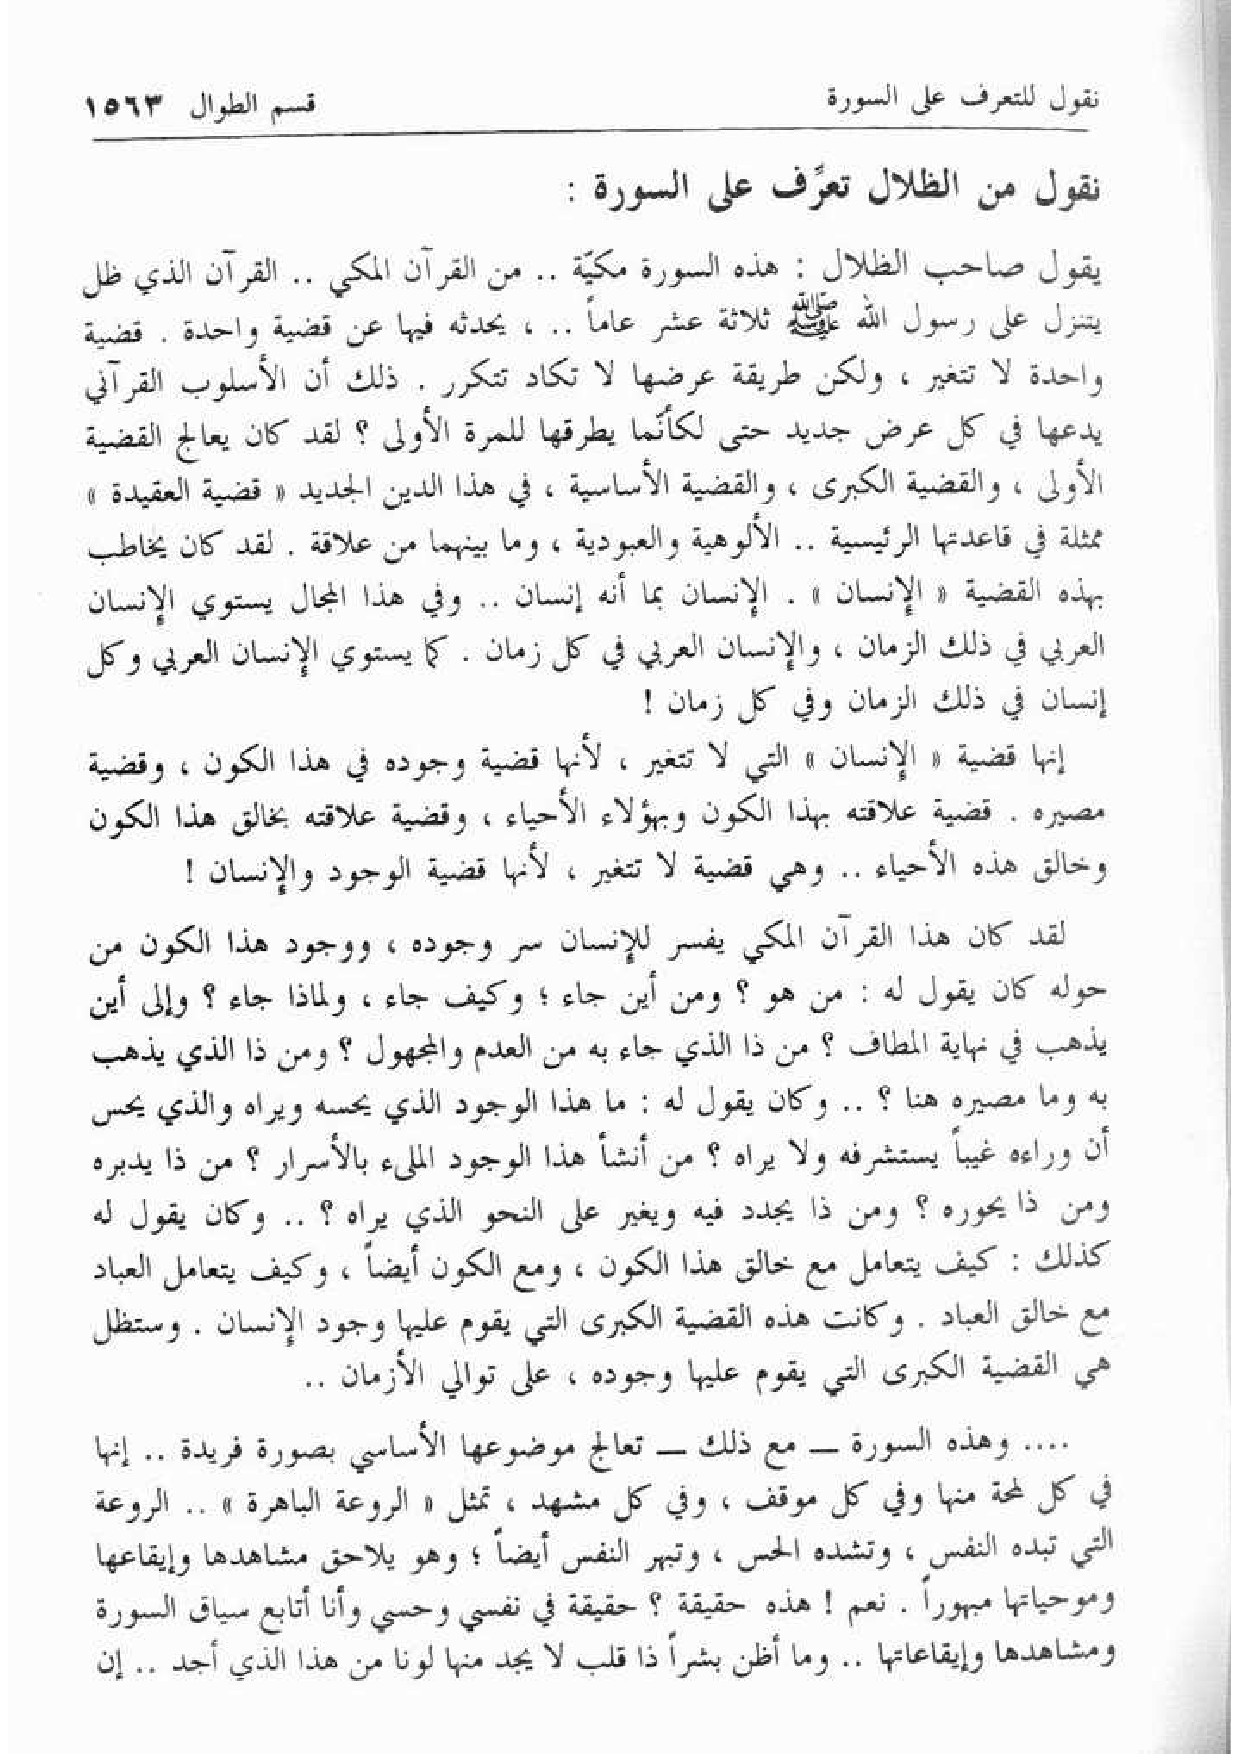 نقول للتعرف على السورة
قسم الطوال ١٥٦٣
نقول من الظلال تعرَّف على السورة :
يقول صاحب الظلال : هذه السورة مكيّة .. من القرآن المكي .. القرآن الذي ظل
يتنزل على رسول الله ﷺ ثلاثة عشر عاماً .. ، يحدثه فيها عن قضية واحدة . قضية
واحدة لا تتغير ، ولكن طريقة عرضها لا تكاد تتكرر . ذلك أن الأسلوب القرآني
يدعها في كل عرض جديد حتى لكأنّما يطرقها للمرة الأولى ؟ لقد كان يعالج القضية
الأولى ، والقضية الكبرى ، والقضية الأساسية ، في هذا الدين الجديد « قضية العقيدة »
ممثلة في قاعدتها الرئيسية .. الألوهية والعبودية ، وما بينهما من علاقة . لقد كان يخاطب
بهذه القضية « الإنسان » . الإنسان بما أنه إنسان .. وفي هذا المجال يستوي الإنسان
العربي في ذلك الزمان ، والإنسان العربي في كل زمان . كما يستوي الإنسان العربي وكل
إنسان في ذلك الزمان وفي كل زمان !
إنها قضية « الإنسان » التي لا تتغير ، لأنها قضية وجوده في هذا الكون ، وقضية
مصيره . قضية علاقته بهذا الكون وبهؤلاء الأحياء ، وقضية علاقته بخالق هذا الكون
وخالق هذه الأحياء .. وهي قضية لا تتغير ، لأنها قضية الوجود والإنسان !
لقد كان هذا القرآن المكي يفسر للإنسان سر وجوده ، ووجود هذا الكون من
حوله كان يقول له : من هو ؟ ومن أين جاء ؛ وكيف جاء ، ولماذا جاء ؟ وإلى أين
يذهب في نهاية المطاف ؟ من ذا الذي جاء به من العدم والمجهول ؟ ومن ذا الذي يذهب
به وما مصيره هنا ؟ .. وكان يقول له : ما هذا الوجود الذي يحسه ويراه والذي يحس
أن وراءه غيباً يستشرفه ولا يراه ؟ من أنشأ هذا الوجود المليء بالأسرار ؟ من ذا يدبره
ومن ذا يحوره ؟ ومن ذا يجدد فيه ويغير على النحو الذي يراه ؟ .. وكان يقول له
كذلك : كيف يتعامل مع خالق هذا الكون ، ومع الكون أيضاً ، وكيف يتعامل العباد
مع خالق العباد . وكانت هذه القضية الكبرى التي يقوم عليها وجود الإنسان . وستظل
هي القضية الكبرى التي يقوم عليها وجوده ، على توالي الأزمان ..
.... وهذه السورة ــ مع ذلك ــ تعالج موضوعها الأساسي بصورة فريدة .. إنها
في كل لمحة منها وفي كل موقف ، وفي كل مشهد ، تمثل « الروعة الباهرة » .. الروعة
التي تبده النفس ، وتشده الحس ، وتبهر النفس أيضاً ؛ وهو يلاحق مشاهدها وإيقاعها
وموحياتها مبهوراً . نعم ! هذه حقيقة ؟ حقيقة في نفسي وحسي وأنا أتابع سياق السورة
ومشاهدها وإيقاعاتها .. وما أظن بشراً ذا قلب لا يجد منها لونا من هذا الذي أجد .. إن